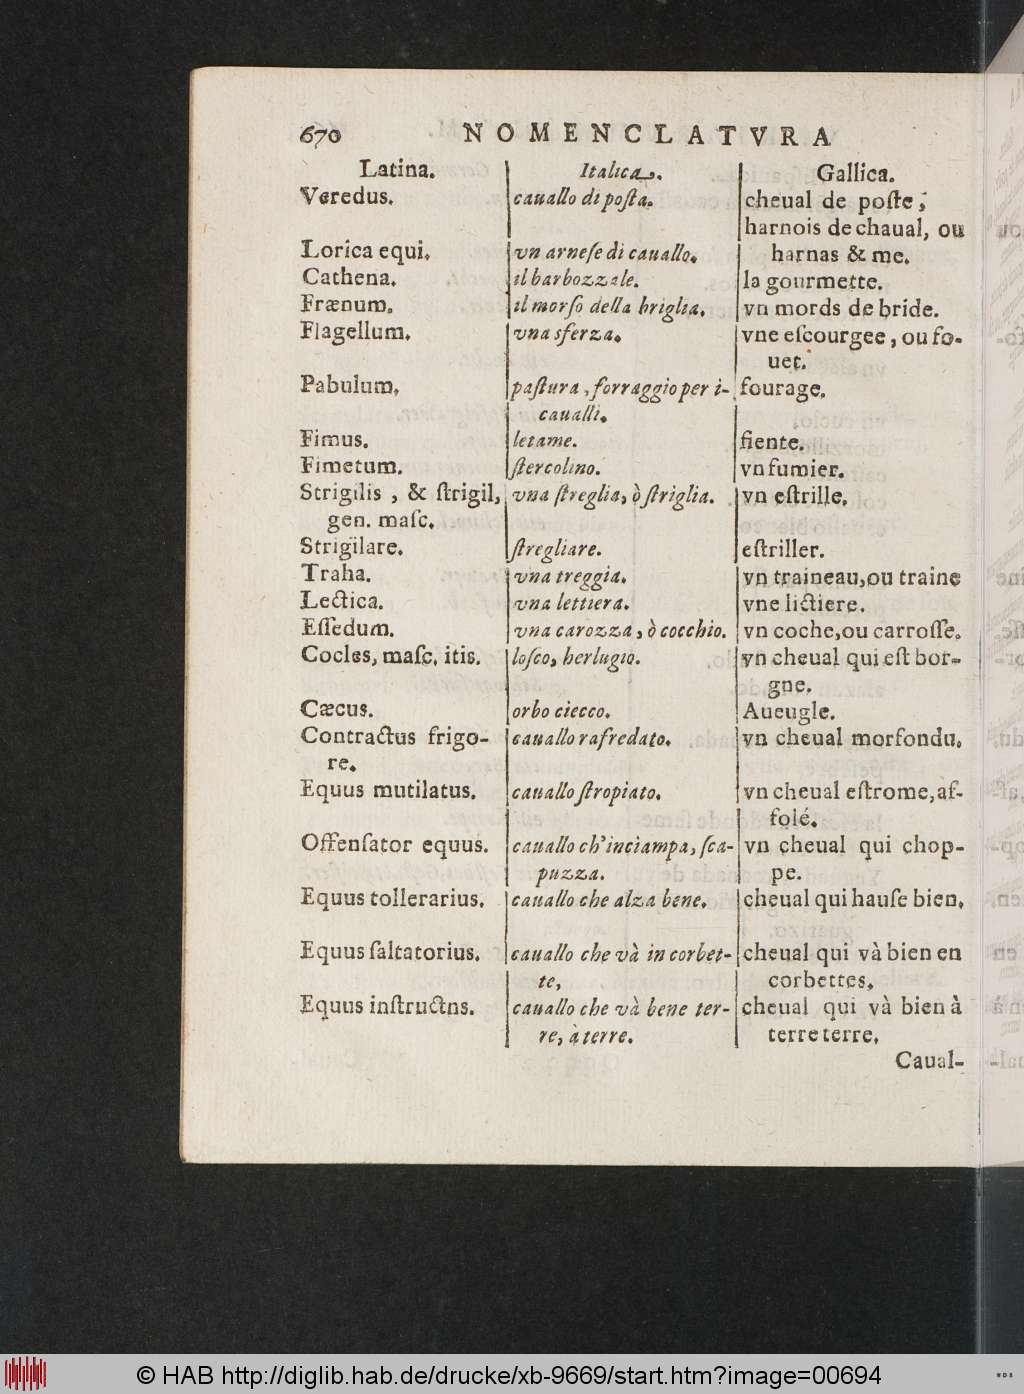 670 NOMENCLATVRA
Latina. Italica. Gallica.
Veredus. cauallo di poſta. cheual de poſte;
harnois de chaual, ou
Lorica equi. vn arneſe di cauallo. harnas & me.
Cathena. il barbozzale. la gourmette.
Frænum. il morſo della briglia. vn mords de bride.
Flagellum. vna sferza. vne eſcourgee, ou fo-
uet.
Pabulum. paſtura, forraggio per i- fourage.
caualli.
Fimus. letame. fiente.
Fimetum. ſtercolino. vn fumier.
Strigilis, & ſtrigil, vna ſtreglia, ò ſtriglia. vn eſtrille.
gen. maſc.
Strigilare. ſtregliare. eſtriller.
Traha. vna treggia. vn traineau, ou traine
Lectica. vna lettiera. vne lictiere.
Eſſedum. vna carozza, ò cocchio. vn coche, ou carroſſe.
Cocles, maſc. itis. loſco, berlugio. vn cheual qui eſt bor-
gne.
Cæcus. orbo ciecco. Aueugle.
Contractus frigo- cauallo rafredato. vn cheual morfondu.
re.
Equus mutilatus. cauallo ſtropiato. vn cheual eſtrome, af-
folé.
Offenſator equus. cauallo ch'inciampa, ſca- vn cheual qui chop-
puzza. pe.
Equus tollerarius. cauallo che alza bene. cheual qui hauſe bien.
Equus ſaltatorius. cauallo che và in corbet- cheual qui và bien en
te, corbettes.
Equus inſtructns. cauallo che và bene ter- cheual qui và bien à
re, à terre. terre terre.
Caual-
© HAB http://diglib.hab.de/drucke/xb-9669/start.htm?image=00694